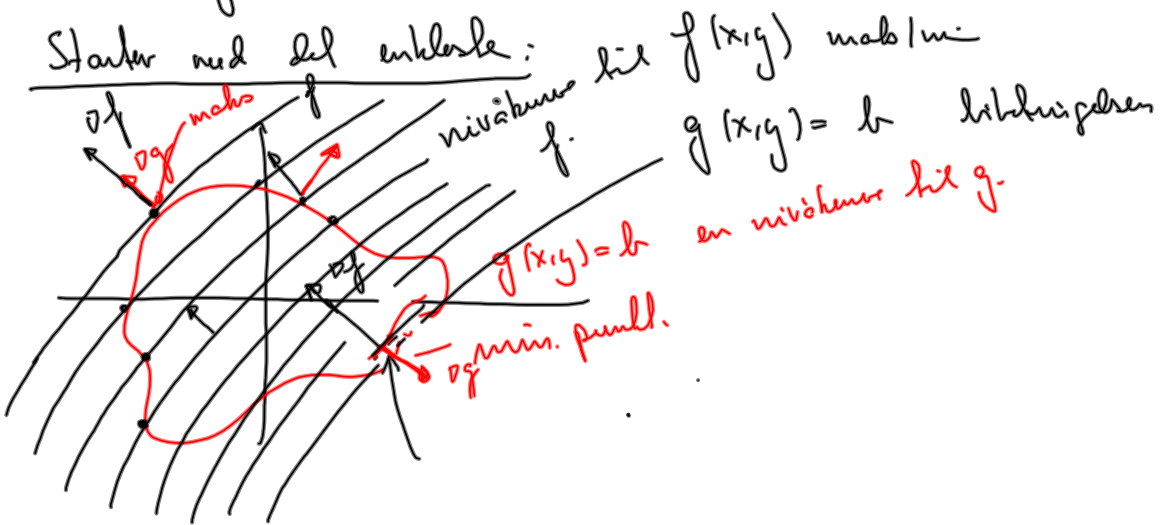 Starter med det enkleste:
f(x,y) maks/min
g(x,y) = b bibetingelsen
nivåkurve til
f.
∇f
∇g
maks
f
g(x,y) = b en nivåkurve til g.
∇f
∇g
min. punkt.